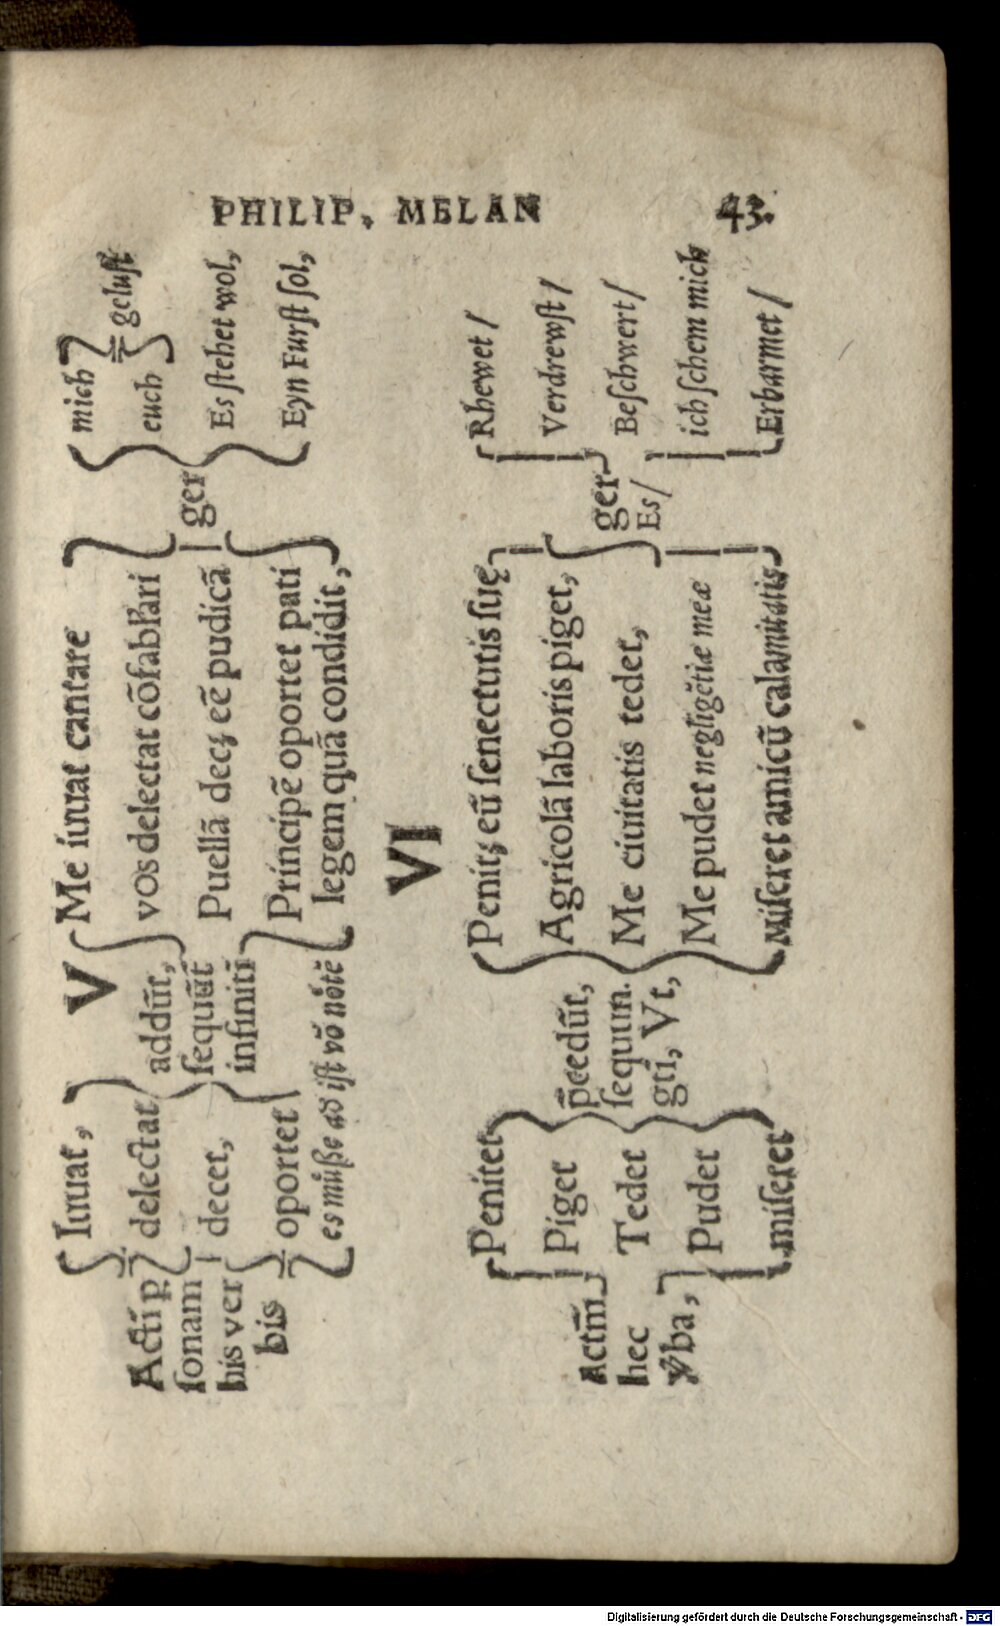 PHILIP. MELAN 43.
V
Actíp
sonam
his ver
bis
Iuuat,
delectat
decet,
oportet
es müße ad ist võ nöte
addũt,
sequũt
infiniti
Me iuuat cantare
vos delectat cõfabłari
Puellã decꝫ eẽ pudicã
Príncipẽ oportet pati
legem quã condidit,
ger
mich
euch
geluſt
Es ſtehet wol,
Eyn Furſt ſol,
VI
Actm̃
hec
ṽba,
Penitet
Piget
Tedet
Pudet
miſeret
p̃cedũt,
ſequun.
gti, Vt,
Penitꝫ eũ ſenectutis ſuę
Agricolã laboris piget,
Me ciuitatis tedet,
Me pudet negligẽtiæ meæ
Miſeret amicũ calamitatis
ger
Es/
Rhewet /
Verdrewſt /
Beſchwert /
ich ſchem mich
Erbarmet /
Digitalisierung gefördert durch die Deutsche Forschungsgemeinschaft - DFG